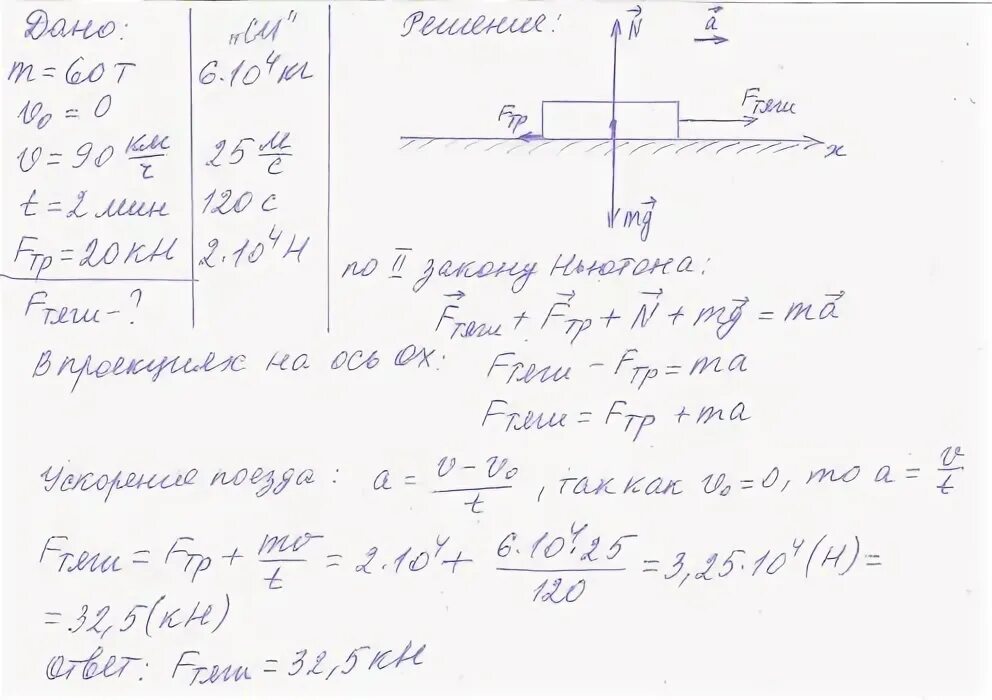 Дано: „СИ"
m = 60 т 6·10⁴ кг
v₀ = 0
v = 90 км/ч 25 м/с
t = 2 мин 120 с
Fтр = 20 кН 2·10⁴ Н
Fтяги - ?
Решение:
N⃗
a⃗
Fтр
F⃗тяги
x
mg⃗
по II закону Ньютона:
F⃗тяги + F⃗тр + N⃗ + mg⃗ = ma⃗
В проекциях на ось OX: Fтяги - Fтр = ma
Fтяги = Fтр + ma
Ускорение поезда: a = (v - v₀)/t, так как v₀ = 0, то a = v/t
Fтяги = Fтр + mv/t = 2·10⁴ + (6·10⁴·25)/120 = 3,25·10⁴ (Н) =
= 32,5 (кН)
Ответ: Fтяги = 32,5 кН